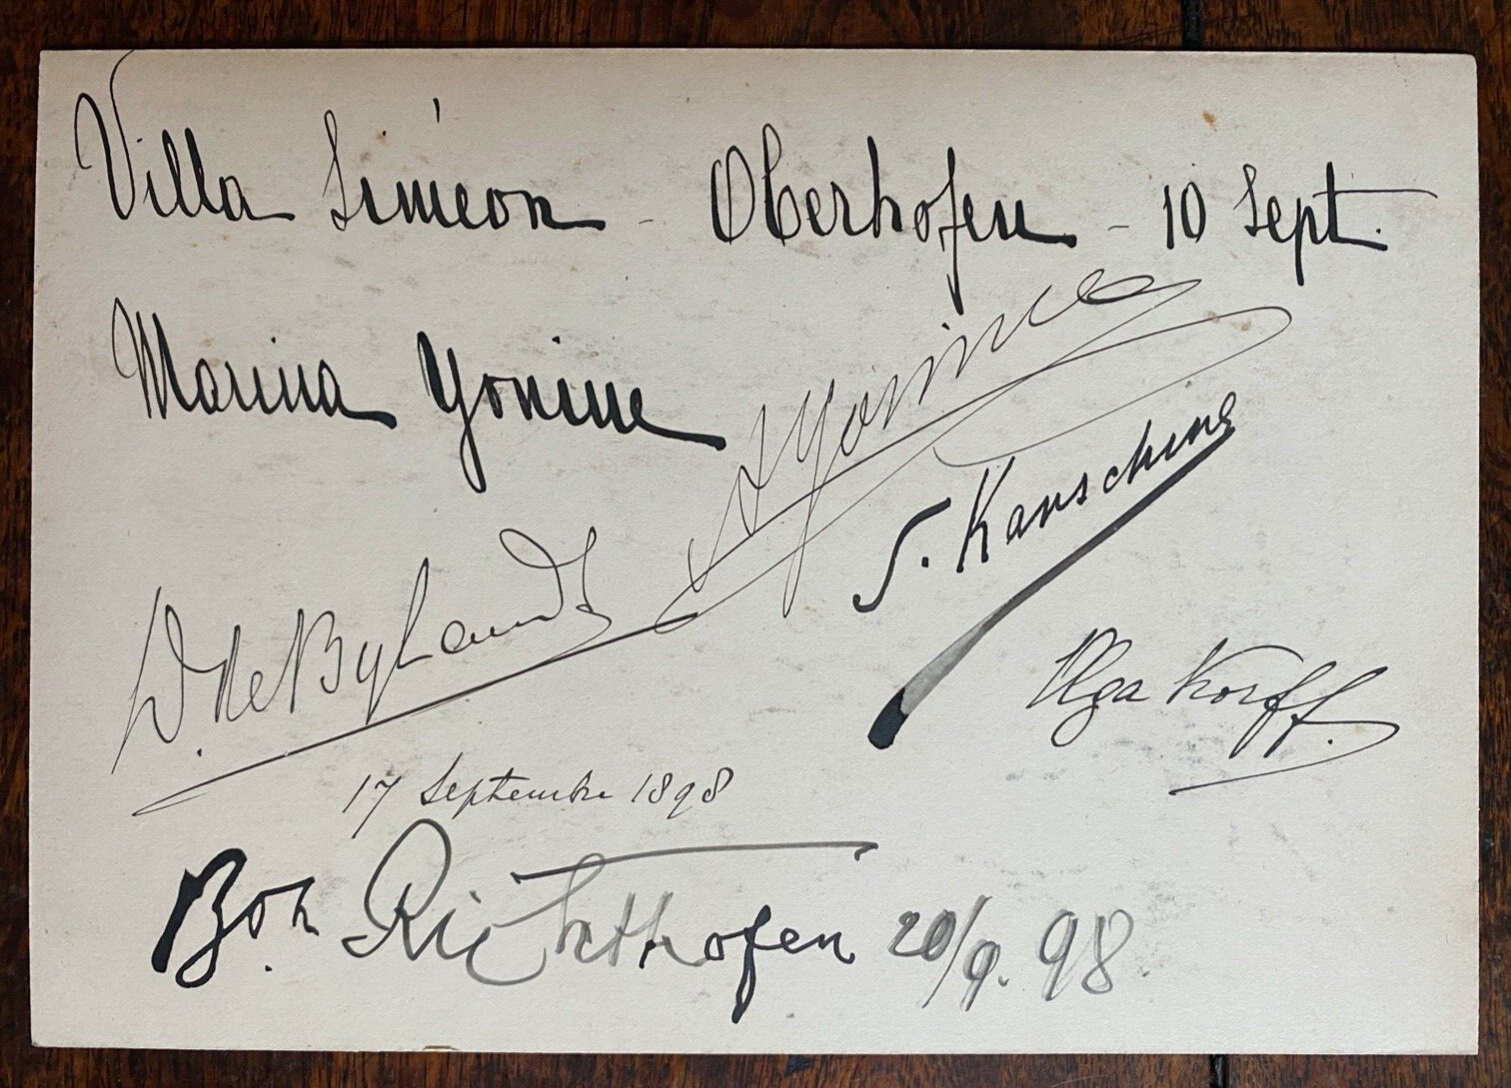 Villa Siméon - Oberhofen - 10 Sept.
Marina Yonine
Yonine
S. Kanschine
D. de Bylandt
Olga Korff.
17 Septembre 1898
Bon Richthofen 20/9. 98